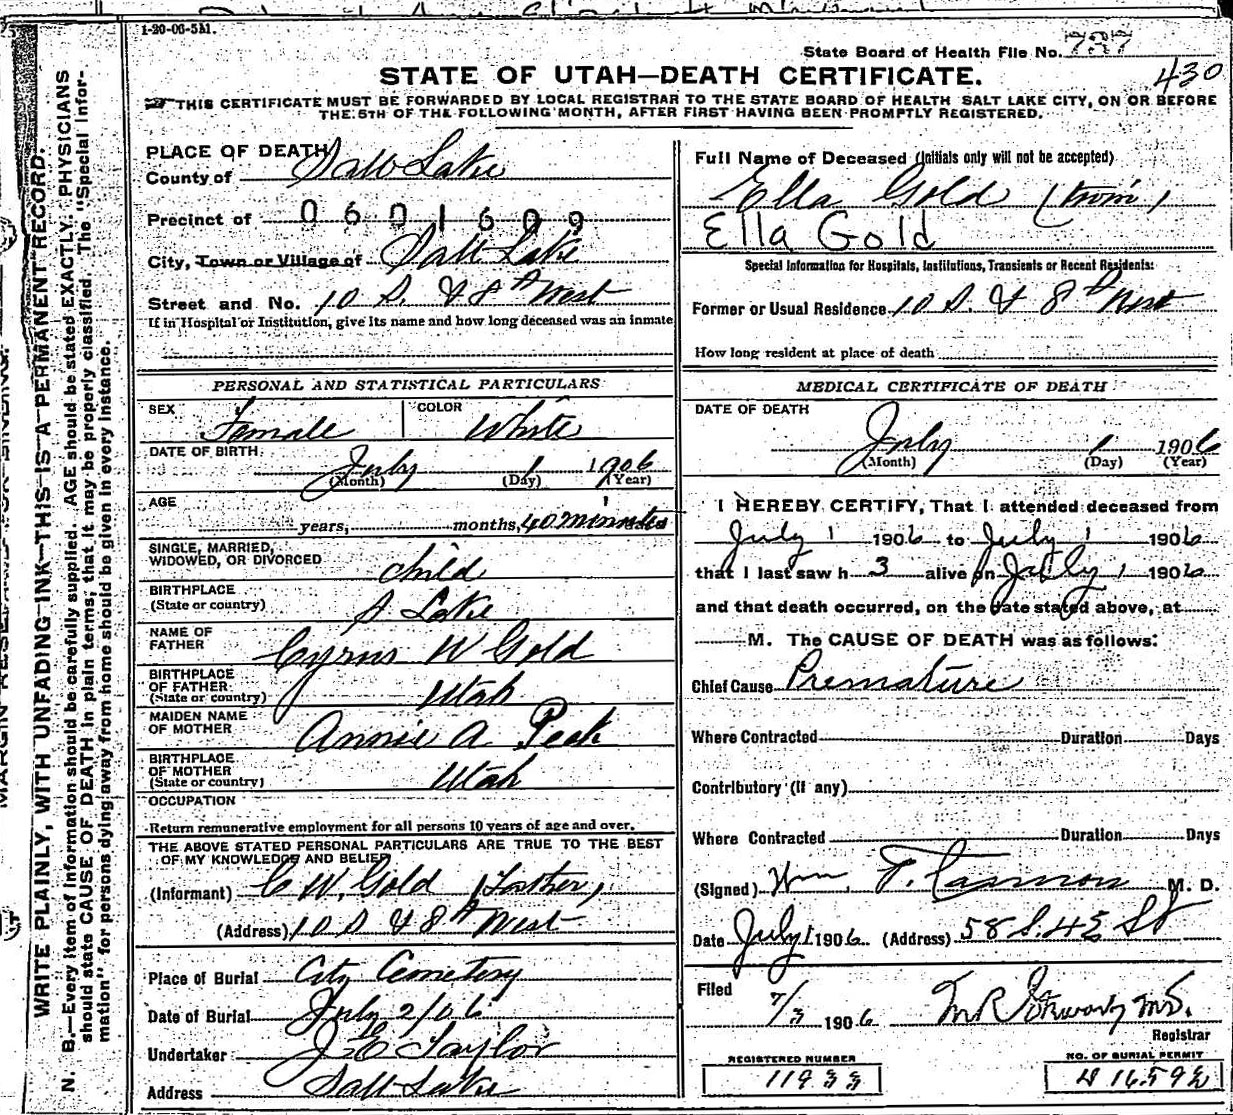 1-20-06-5M.
State Board of Health File No. 737
430
STATE OF UTAH—DEATH CERTIFICATE.
THIS CERTIFICATE MUST BE FORWARDED BY LOCAL REGISTRAR TO THE STATE BOARD OF HEALTH SALT LAKE CITY, ON OR BEFORE
THE 5TH OF THE FOLLOWING MONTH, AFTER FIRST HAVING BEEN PROMPTLY REGISTERED.
PLACE OF DEATH
County of Salt Lake
Precinct of 0601609
City, Town or Village of Salt Lake
Street and No. 10 S. & 8th West
If in Hospital or Institution, give its name and how long deceased was an inmate
Full Name of Deceased (Initials only will not be accepted)
Ella Gold (twin)
Ella Gold
Special Information for Hospitals, Institutions, Transients or Recent Residents:
Former or Usual Residence 10 S. & 8th West
How long resident at place of death
PERSONAL AND STATISTICAL PARTICULARS
SEX Female COLOR White
DATE OF BIRTH July 1 1906
(Month) (Day) (Year)
AGE years, months, 40 minutes
SINGLE, MARRIED,
WIDOWED, OR DIVORCED child
BIRTHPLACE
(State or country) S Lake
NAME OF
FATHER Cyrus W Gold
BIRTHPLACE
OF FATHER
(State or country) Utah
MAIDEN NAME
OF MOTHER Annie A Peak
BIRTHPLACE
OF MOTHER
(State or country) Utah
OCCUPATION
Return remunerative employment for all persons 10 years of age and over.
THE ABOVE STATED PERSONAL PARTICULARS ARE TRUE TO THE BEST
OF MY KNOWLEDGE AND BELIEF
(Informant) C W. Gold (Father)
(Address) 10 S & 8th West
Place of Burial City Cemetery
Date of Burial July 2/06
Undertaker J E Taylor
Address Salt Lake
MEDICAL CERTIFICATE OF DEATH
DATE OF DEATH
July 1 1906
(Month) (Day) (Year)
I HEREBY CERTIFY, That I attended deceased from
July 1 1906 to July 1 1906
that I last saw h alive on July 1 1906
and that death occurred, on the date stated above, at
M. The CAUSE OF DEATH was as follows:
Chief Cause Premature
Where Contracted Duration Days
Contributory (if any)
Where Contracted Duration Days
(Signed) Wm. T. Cannon M. D.
Date July 1 1906 (Address) 58 S. 4 E St
Filed 7/3 1906 M R Stewart M.D.
Registrar
REGISTERED NUMBER
11933
NO. OF BURIAL PERMIT
WRITE PLAINLY, WITH UNFADING INK—THIS IS A PERMANENT RECORD.
N. B.—Every item of information should be carefully supplied. AGE should be stated EXACTLY. PHYSICIANS
should state CAUSE OF DEATH in plain terms, that it may be properly classified. The "Special Infor-
mation" for persons dying away from home should be given in every instance.